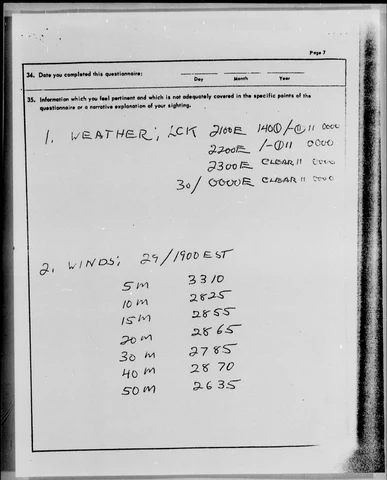 Page 7
34. Date you completed this questionnaire:
Day Month Year
35. Information which you feel pertinent and which is not adequately covered in the specific points of the
questionnaire or a narrative explanation of your sighting.
1. WEATHER; LCK 2100E 140⦶/-⦶11 0000
2200E /-⦶11 0000
2300E CLEAR11 0000
30/ 0000E CLEAR11 0000
2. WINDS; 29/1900 EST
5M 3310
10M 2825
15M 2855
20M 2865
30M 2785
40M 2870
50M 2635